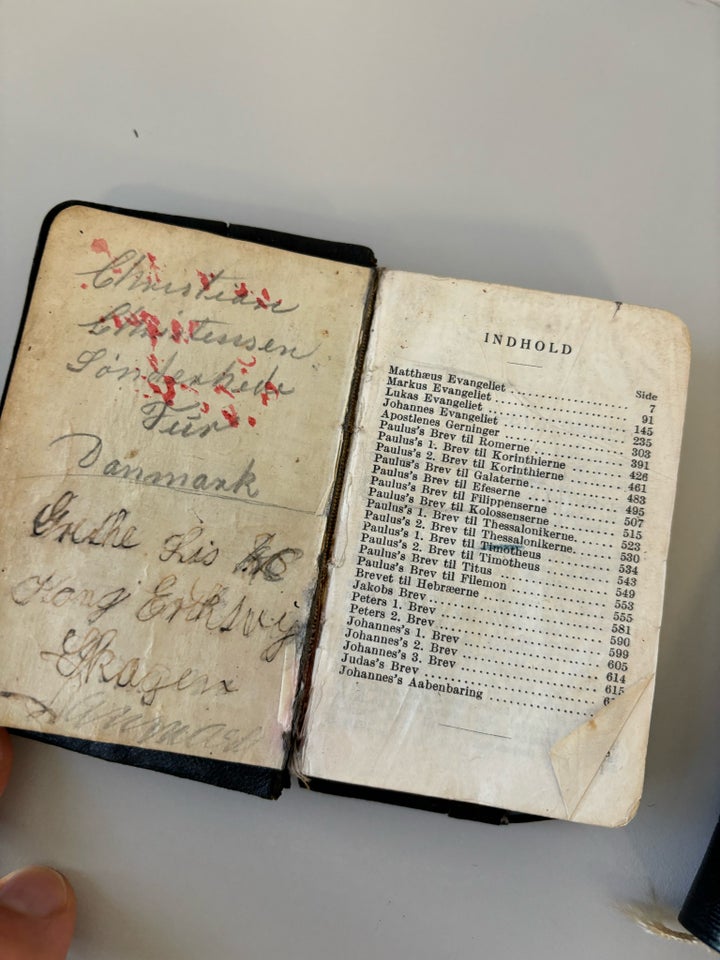 Christian
Christensen
Sønderhede
Fur
Danmark
Grethe Lis
Kong Eriksvej
Skagen
INDHOLD
Side
Matthæus Evangeliet 7
Markus Evangeliet 91
Lukas Evangeliet 145
Johannes Evangeliet 235
Apostlenes Gerninger 303
Paulus's Brev til Romerne 391
Paulus's 1. Brev til Korinthierne 426
Paulus's 2. Brev til Korinthierne 461
Paulus's Brev til Galaterne 483
Paulus's Brev til Efeserne 495
Paulus's Brev til Filippenserne 507
Paulus's Brev til Kolossenserne 515
Paulus's 1. Brev til Thessalonikerne. 523
Paulus's 2. Brev til Thessalonikerne. 530
Paulus's 1. Brev til Timotheus 534
Paulus's 2. Brev til Timotheus 543
Paulus's Brev til Titus 549
Paulus's Brev til Filemon 553
Brevet til Hebræerne 555
Jakobs Brev 581
Peters 1. Brev 590
Peters 2. Brev 599
Johannes's 1. Brev 605
Johannes's 2. Brev 614
Johannes's 3. Brev 615
Judas's Brev
Johannes's Aabenbaring